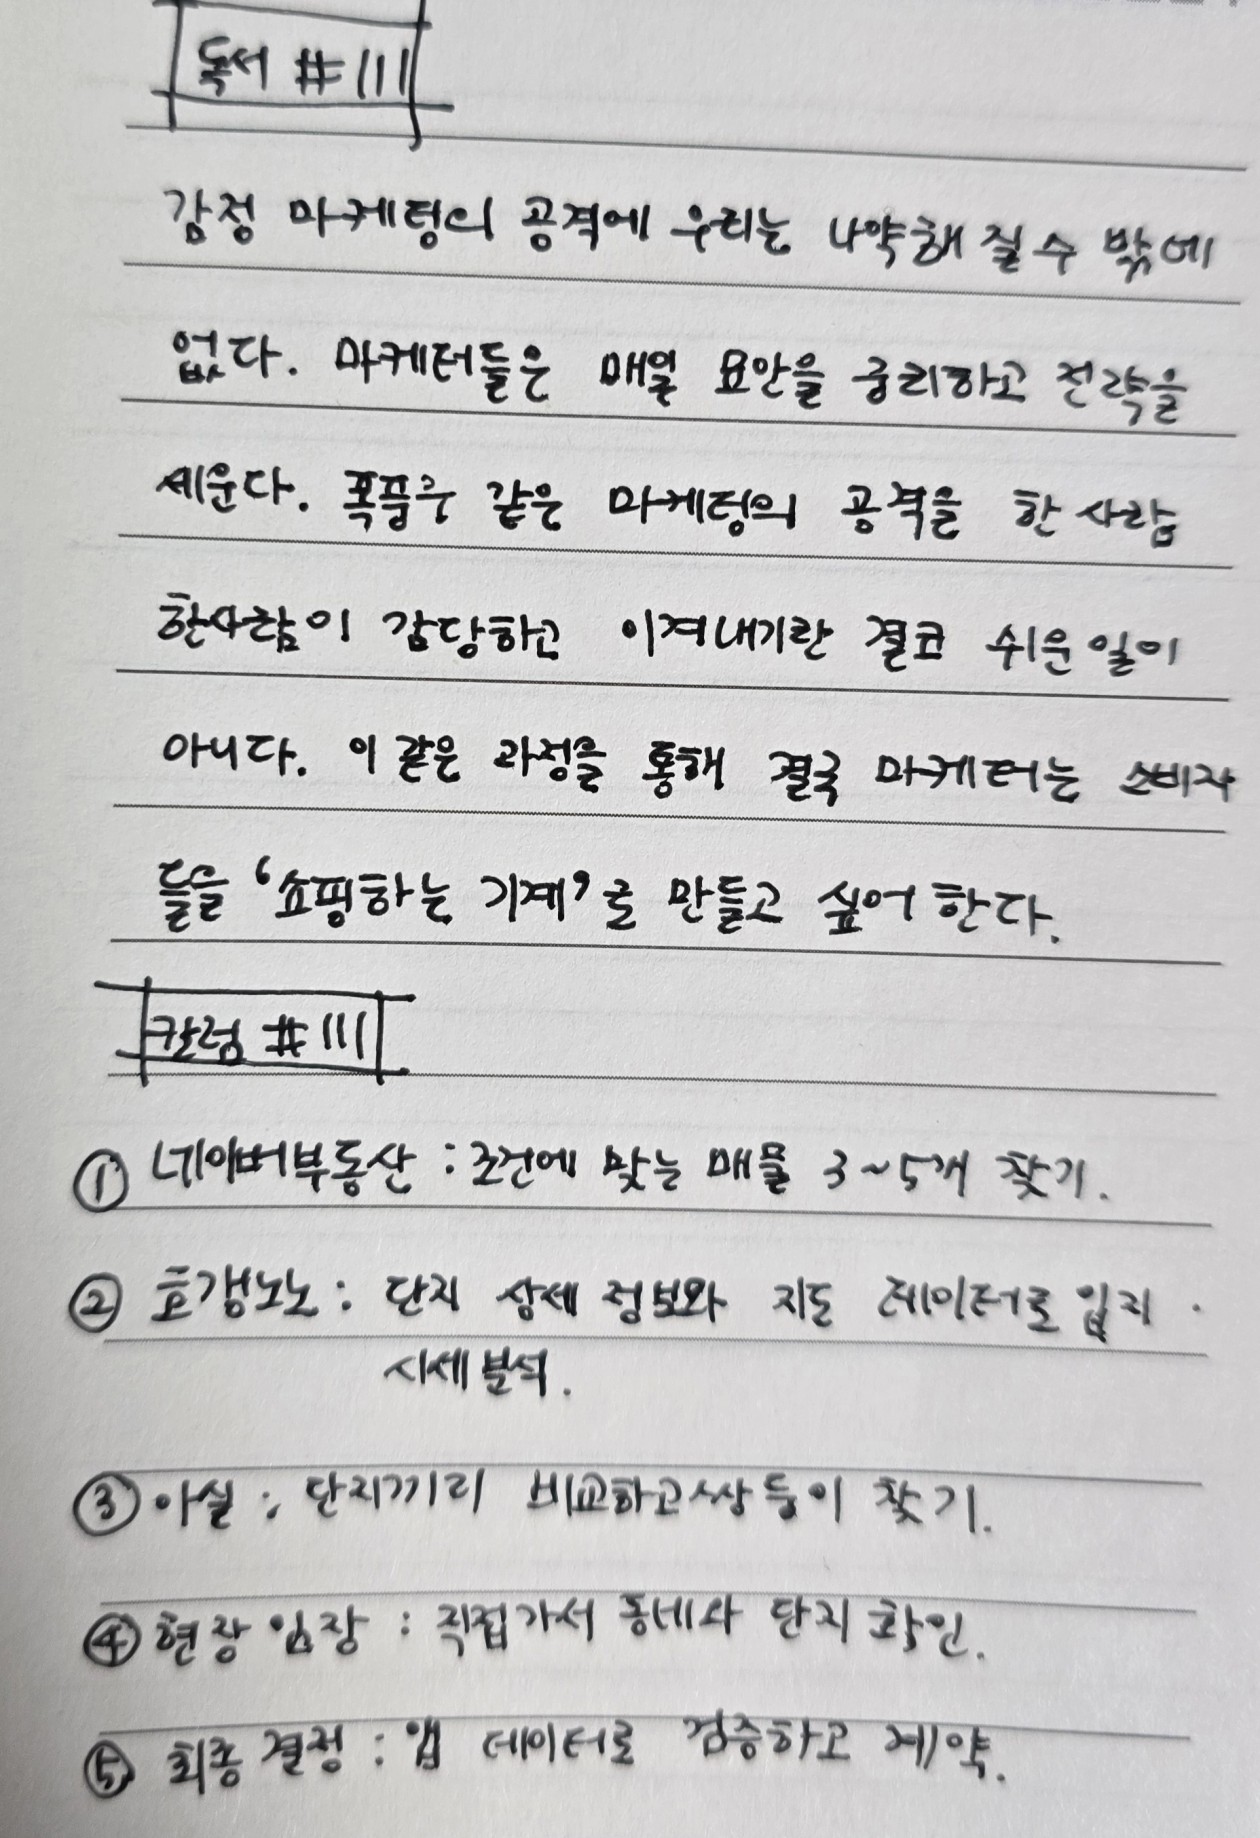 독서 #111
감정 마케팅의 공격에 우리는 나약해 질 수 밖에
없다. 마케터들은 매일 묘안을 궁리하고 전략을
세운다. 폭풍우 같은 마케팅의 공격을 한 사람
한사람이 감당하고 이겨내기란 결코 쉬운 일이
아니다. 이 같은 과정을 통해 결국 마케터는 소비자
들을 '쇼핑하는 기계'로 만들고 싶어 한다.
칼럼 #111
① 네이버부동산 : 조건에 맞는 매물 3~5개 찾기.
② 호갱노노 : 단지 상세 정보와 지도 데이터로 입지 ·
시세 분석.
③ 아실 : 단지끼리 비교하고 쌍둥이 찾기.
④ 현장 임장 : 직접가서 동네와 단지 확인.
⑤ 최종 결정 : 앱 데이터로 검증하고 계약.